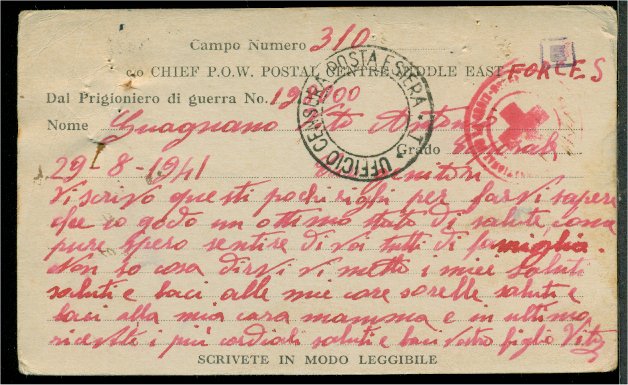 Campo Numero 310
c/o CHIEF P.O.W. POSTAL CENTRE MIDDLE EAST FORCES
Dal Prigioniero di guerra No.
Nome Guagnano
Grado
UFFICIO CENSURA POSTA ESTERA
29-8-1941 genitori
Vi scrivo questi pochi righi per farvi sapere
che io godo un ottimo stato di salute, come
pure spero sentire di voi tutti di famiglia.
Non so cosa dirvi vi metto i miei saluti
saluti e baci alle mie care sorelle saluti e
baci alla mia cara mamma e in ultimo
ricevete i più cordiali saluti e baci vostro figlio Vito
SCRIVETE IN MODO LEGGIBILE